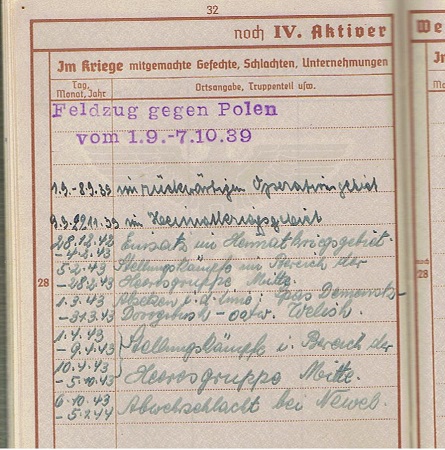 32
noch IV. Aktiver
We
Im Kriege mitgemachte Gefechte, Schlachten, Unternehmungen
Tag, Monat, Jahr
Ortsangabe, Truppenteil usw.
Feldzug gegen Polen
vom 1.9.-7.10.39
1.9.-8.9.39 im rückwärtigen Operationsgebiet
im Heimatkriegsgebiet
28.12.42 Einsatz im Heimatkriegsgebiet.
-4.2.43
5.2.43 Stellungskämpfe im Bereich der
-28.2.43 Heeresgruppe Mitte.
28
1.3.43 Absetzen
-31.3.43 Dorogobush - Welish.
1.4.43
-9.4.43 Stellungskämpfe i. Bereich der
10.4.43
-5.10.43 Heeresgruppe Mitte.
6.10.43 Abwehrschlacht bei Newel.
-5.2.44